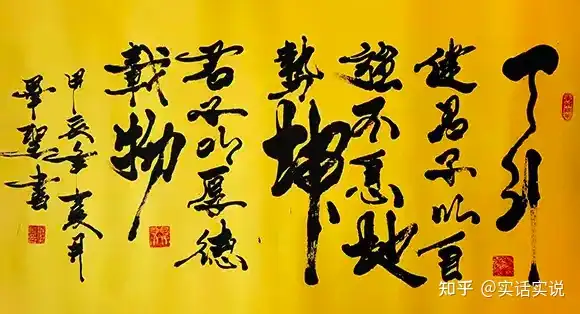 天行
健君子以自
強不息地
勢坤
君子以厚德
載物
甲辰年夏月
華聖書
知乎 @实话实说